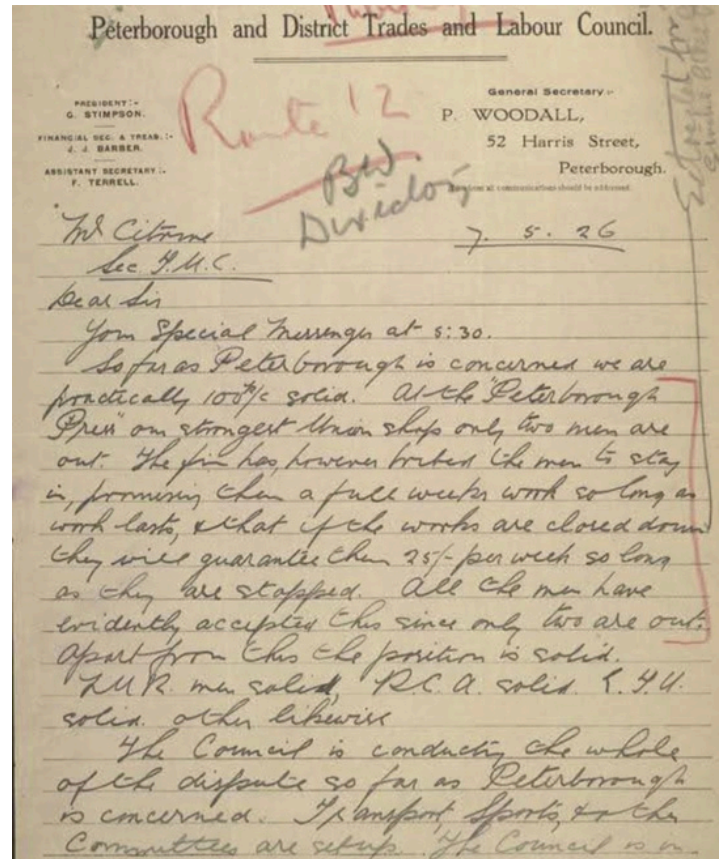 Peterborough and District Trades and Labour Council.
PRESIDENT:-
G. STIMPSON.
FINANCIAL SEC. & TREAS.:-
J. J. BARBER.
ASSISTANT SECRETARY:-
F. TERRELL.
General Secretary:-
P. WOODALL,
52 Harris Street,
Peterborough.
To whom all communications should be addressed.
Route 12
BW.
Division
Extracted for
Mr Citrine
7. 5. 26
Sec T.U.C.
Dear Sir
Your Special Messenger at 5:30.
So far as Peterborough is concerned we are
practically 100% solid. At the "Peterborough
Press" our strongest Union shop only two men are
out. The firm has, however bribed the men to stay
in, promising them a full weeks work so long as
work lasts, & that if the works are closed down
they will guarantee them 25/- per week so long
as they are stopped. All the men have
evidently accepted this since only two are out.
Apart from this the position is solid.
N.U.R. men solid, R.C.A. solid. E.T.U.
solid. other likewise
The Council is conducting the whole
of the dispute so far as Peterborough
is concerned. Transport, Sports, & other
Committees are setup. The Council is in